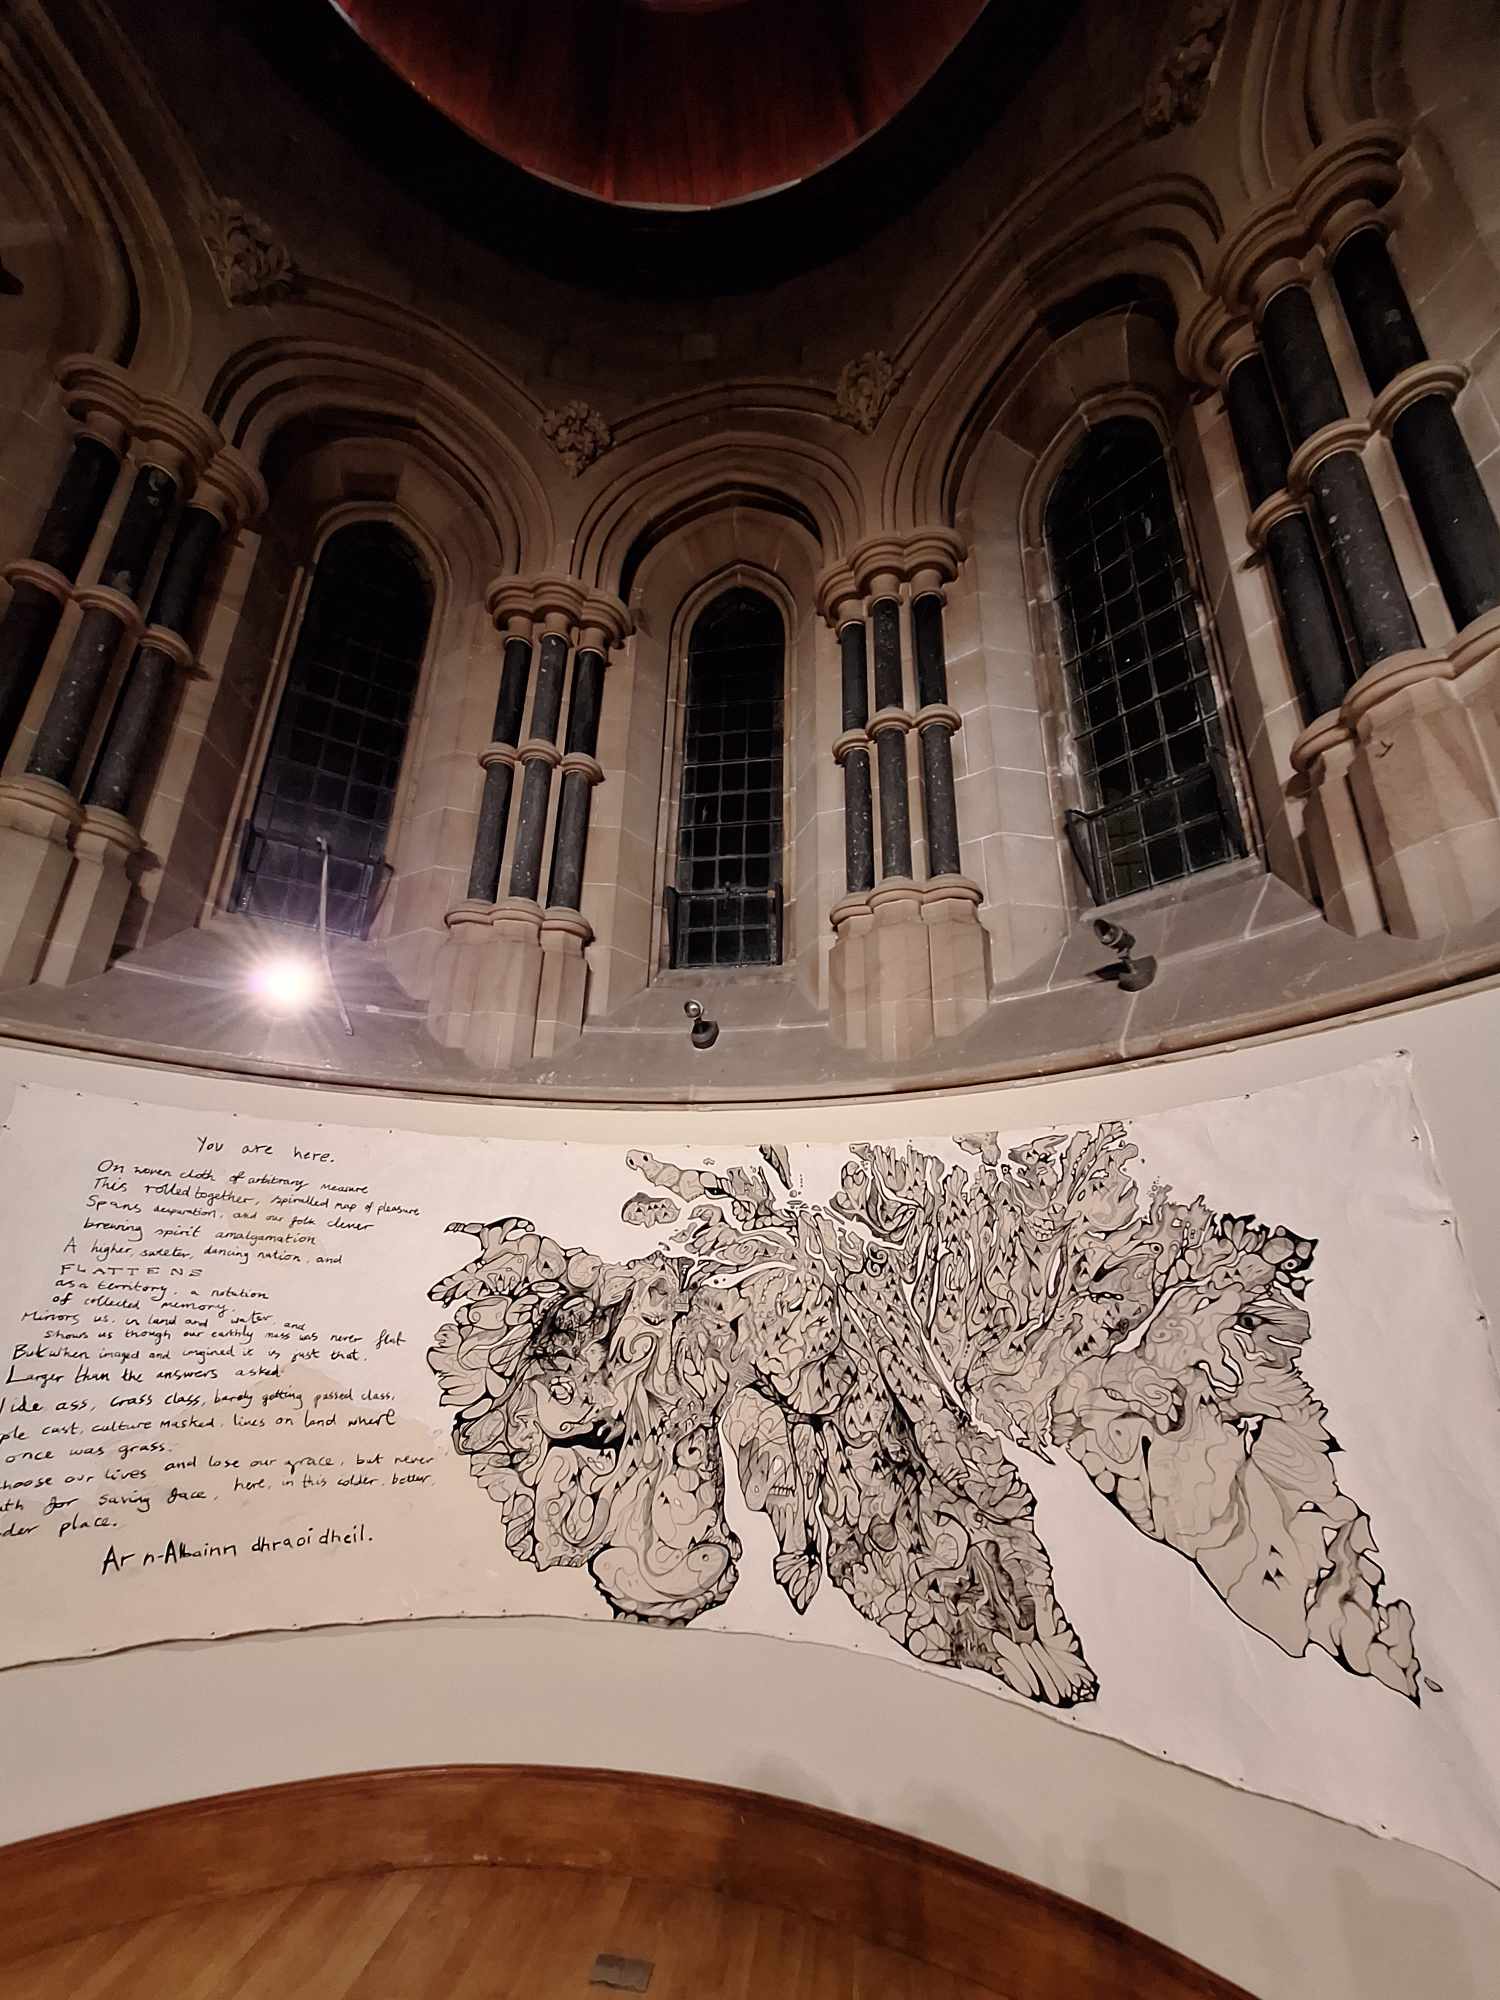 You are here.
On woven cloth of arbitrary measure
This rolled together, spiralled map of pleasure
Spans desparation, and our folk clever
brewing spirit amalgamation
A higher, sweeter, dancing nation, and
FLATTENS
as a territory, a notation
of collected memory.
Mirrors us, in land and water, and
shows us though our earthly mass was never flat
But when imaged and imagined it is just that.
Larger than the answers asked.
ide ass, crass class, barely getting passed class,
ple cast, culture masked, lines on land where
once was grass.
hoose our lives and lose our grace, but never
ath for saving face, here, in this colder, better,
der place.
Ar n-Albainn dhraoidheil.